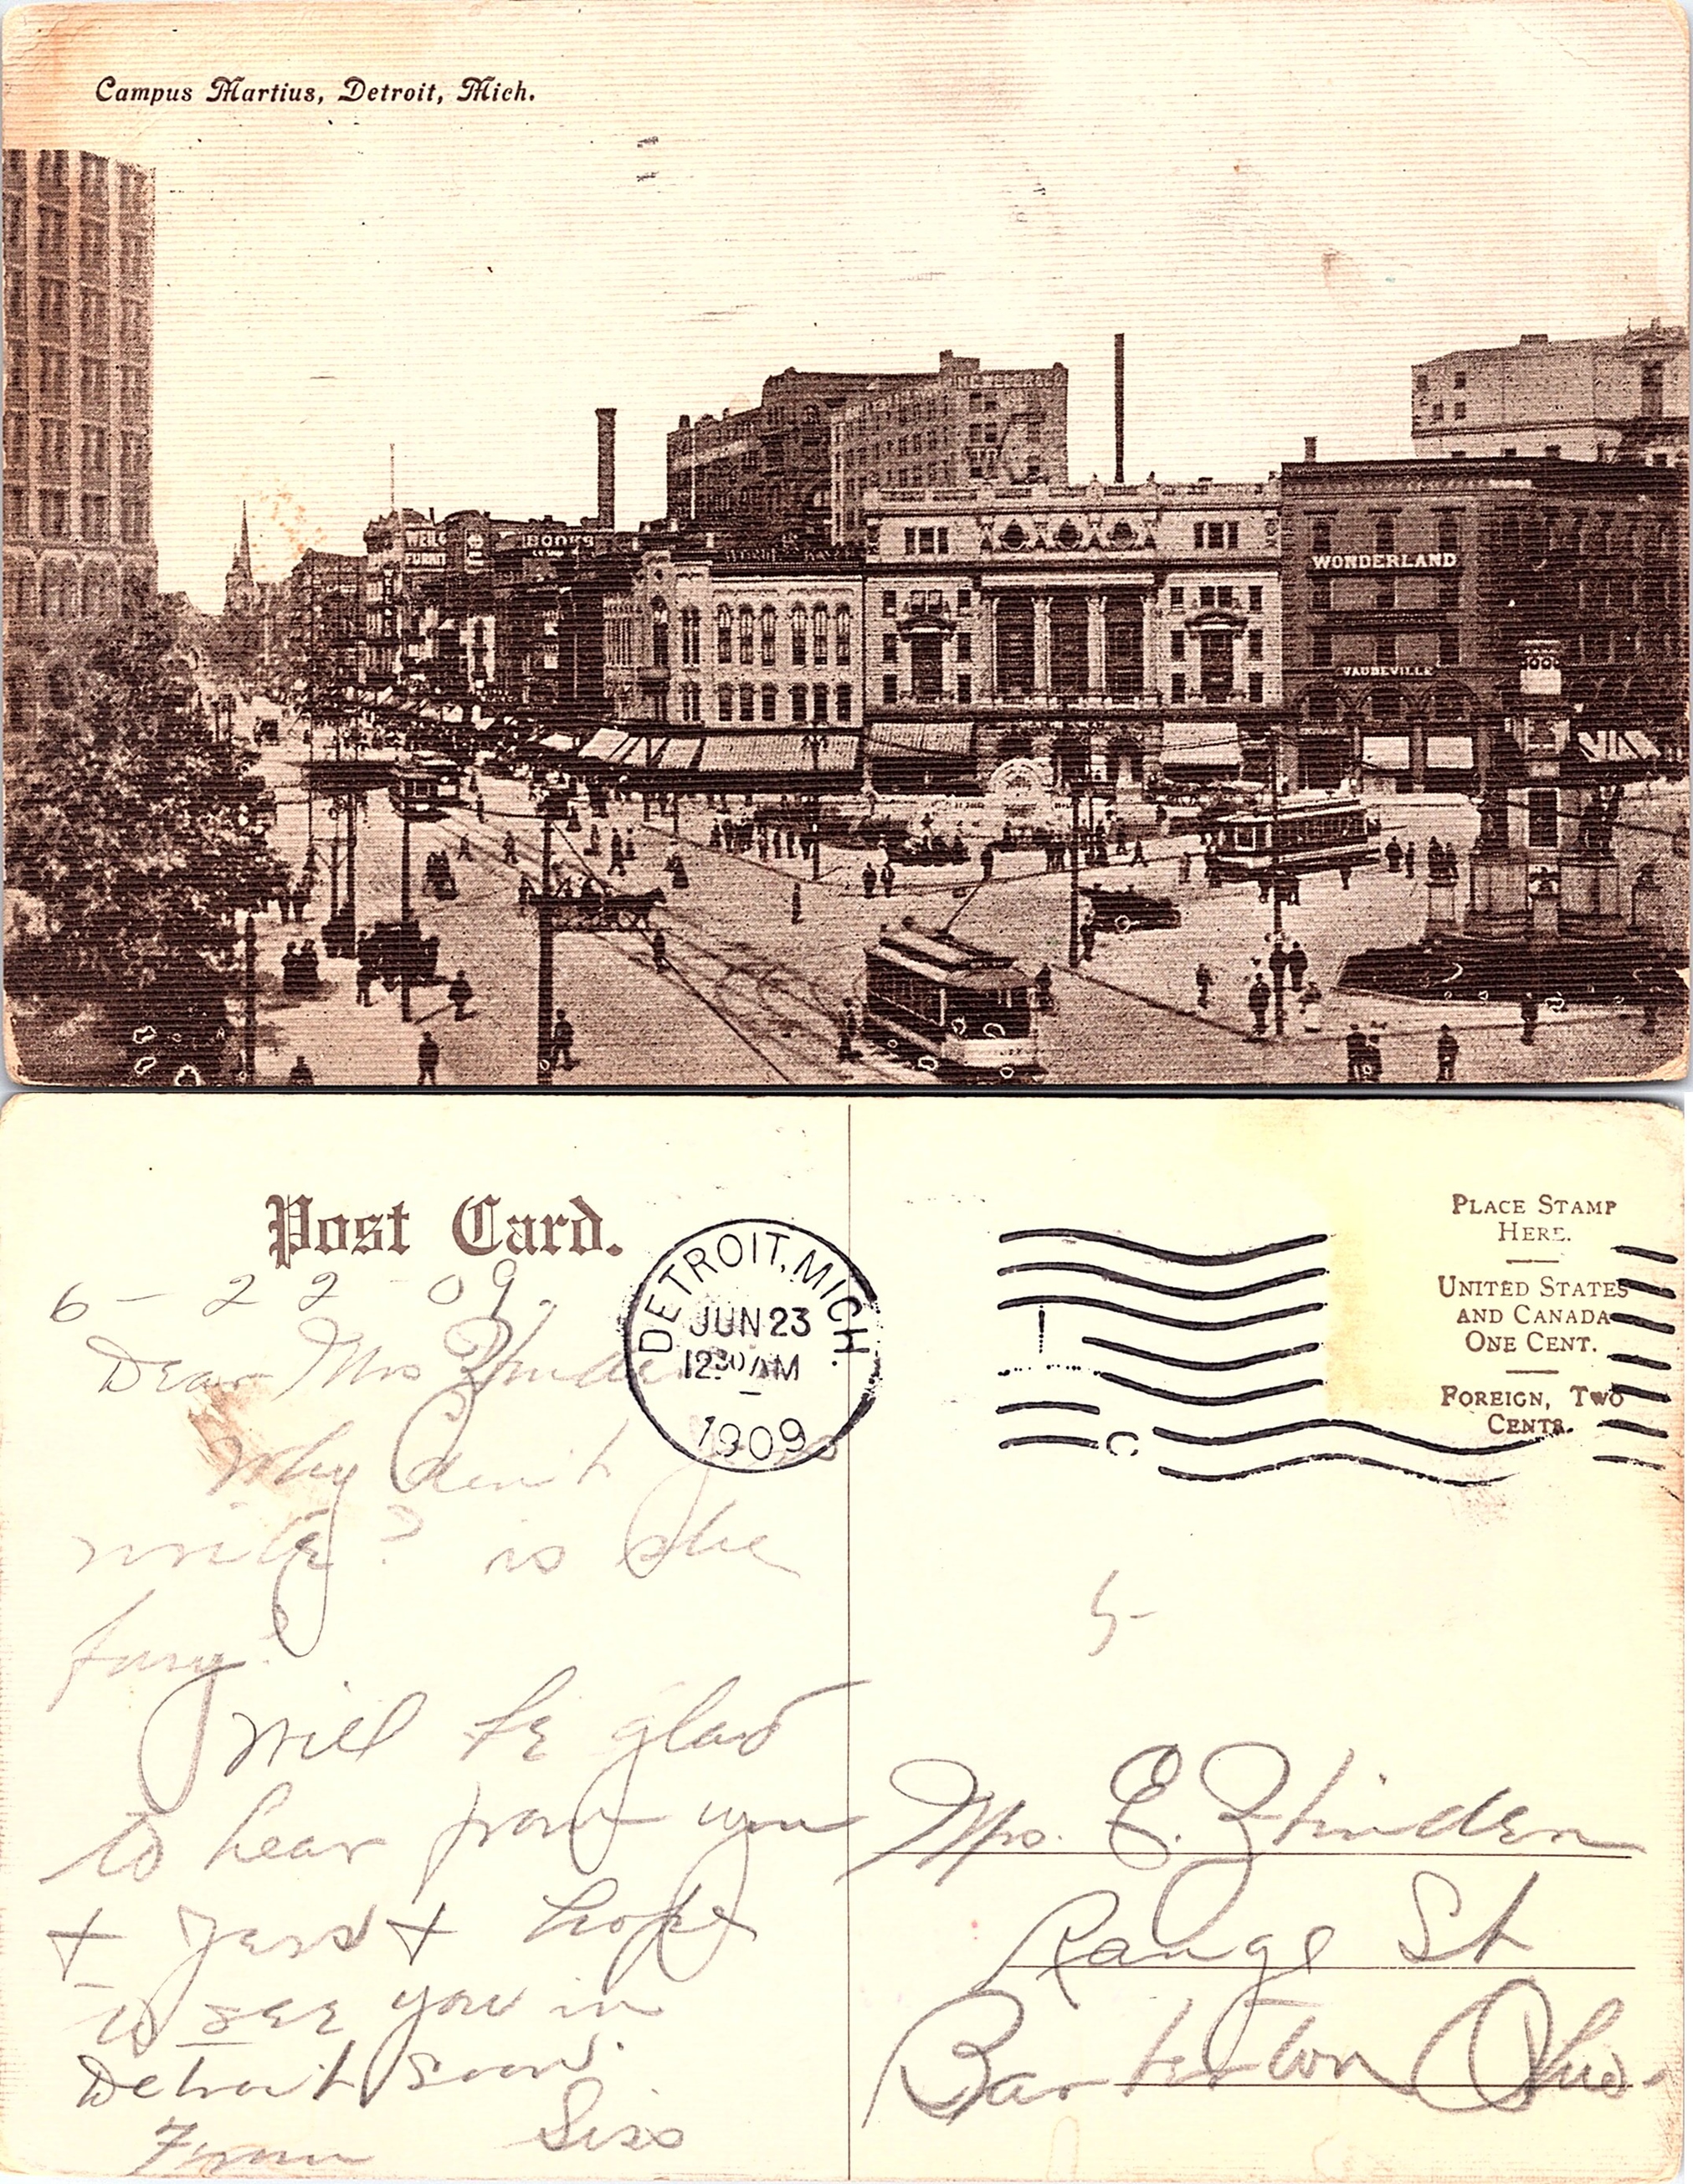 Campus Martius, Detroit, Mich.
WEIL &
FURNIT
BOOKS
WONDERLAND
VAUDEVILLE
Post Card.
DETROIT, MICH.
JUN 23
12 30 AM
1909
PLACE STAMP
HERE.
UNITED STATES
AND CANADA
ONE CENT.
FOREIGN, TWO
CENTS.
C
6-22-09.
Dear Mrs
Why don't
write? is she
busy?
Will be glad
to hear from you
+ + hope
to see you in
Detroit soon.
From Siss
Mrs. E. Zhinden
Range St
Barberton Ohio.